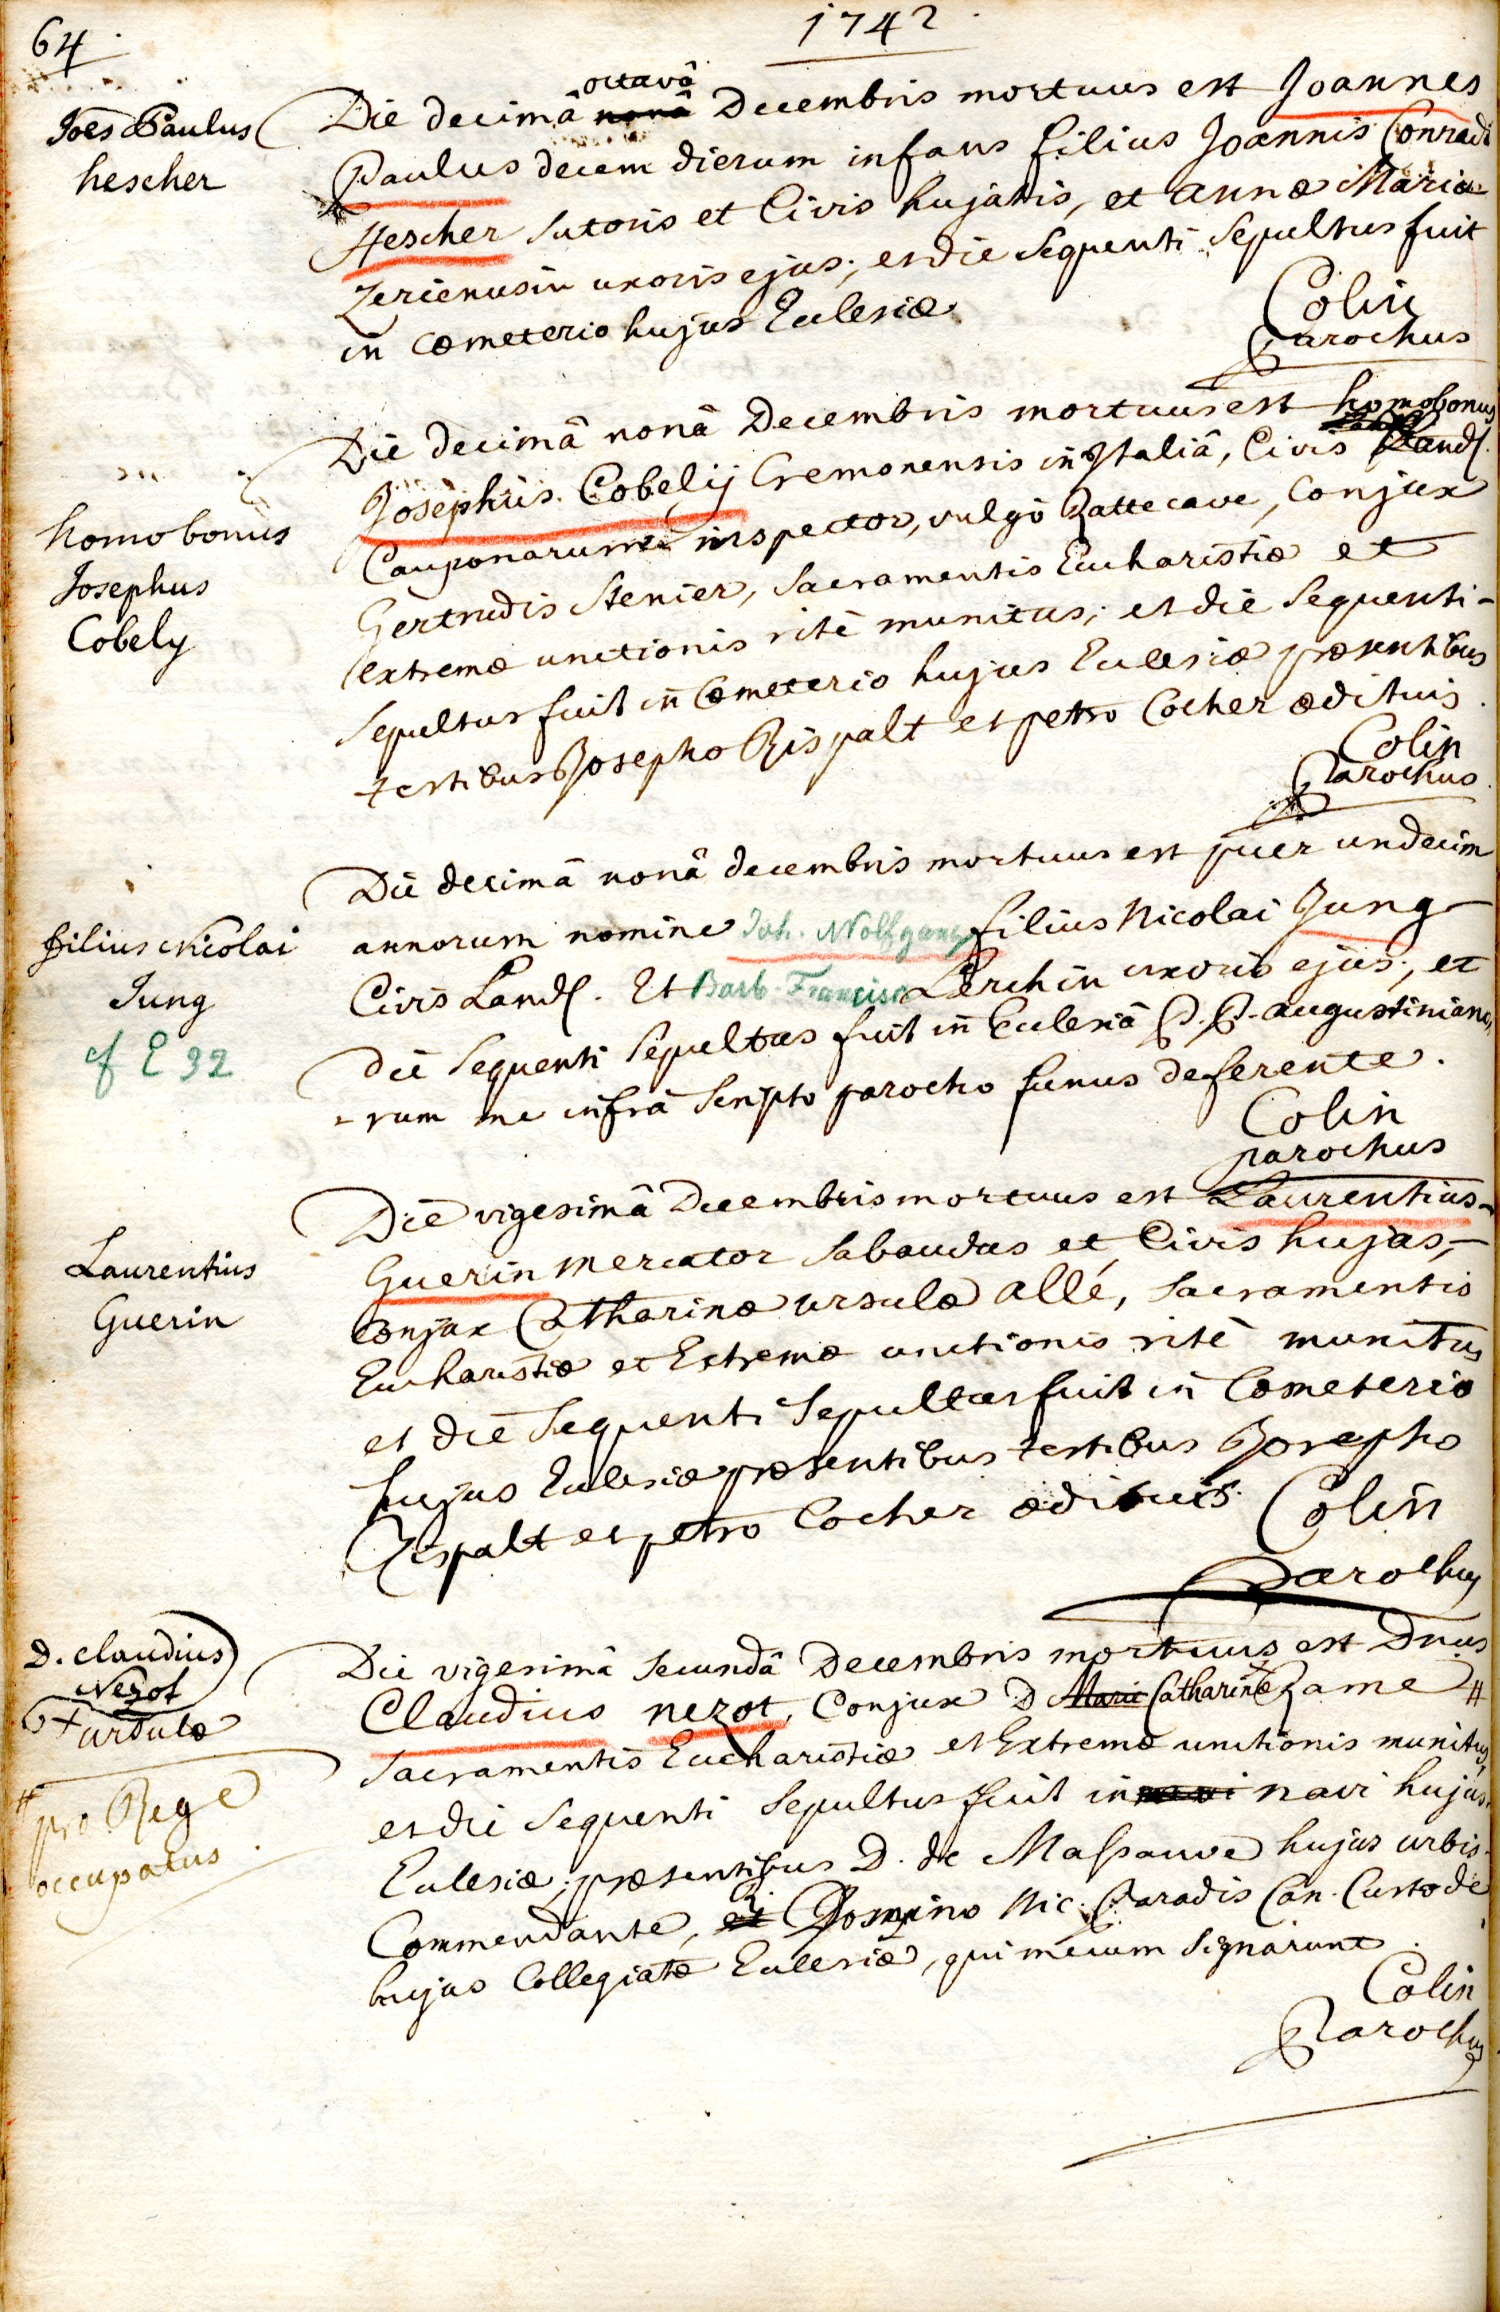 64
1742
Joēs Paulus
hescher
octavâ
Die decimâ nonâ Decembris mortuus est Joannes
Paulus decem dierum infans filius Joannis Conradi
Hescher sutoris et Civis hujatis, et annæ Mariæ
Zerienusin uxoris ejus; et die sequenti sepultus fuit
in cœmeterio hujus Ecclesiæ
Colin
Parochus
homobonus
Josephus
Cobely
Die decimâ nonâ Decembris mortuus est homobonus
Josephus Cobelij Cremonensis in Italiâ, Civis Land.
Cauponarum inspector, vulgò Rattecave, Conjux
Gertrudis Stenier, sacramentis Eucharistiæ et
extremæ unctionis ritè munitus; et die sequenti
sepultus fuit in Cœmeterio hujus Ecclesiæ præsentibus
testibus Josepho Rispalt et petro Cocher ædituis.
Colin
Parochus
filius Nicolai
Jung
cf E 92
Die decimâ nonâ decembris mortuus est puer undecim
annorum nomine Joh. Wolfgang filius Nicolai Jung
Civis Land. Et Barb. Francisca Lerchin uxoris ejus; et
die sequenti sepultus fuit in Ecclesiâ P.P. augustiniano
-rum me infrà scripto parocho funus deferente.
Colin
parochus
Laurentius
Guerin
Die vigesimâ Decembris mortuus est Laurentius
Guerin mercator sabaudus et Civis hujas,
conjux Catharinæ ursulæ allé, sacramentis
Eucharistiæ et Extremæ unctionis ritè munitus
et die sequenti sepultus fuit in Cœmeterio
hujus Ecclesiæ præsentibus testibus Josepho
Rispalt et petro Cocher ædituis. Colin
Parochus
D. claudius
Nezot
+ ursulæ
# pro Rege
occupatus
Die vigesimâ secundâ Decembris mortuus est Dnus
Claudius nezot, Conjux D Mariæ Catharinæ + Rame #
sacramentis Eucharistiæ et Extremæ unctionis munitus,
et die sequenti sepultus fuit in navi navi hujus
Ecclesiæ; præsentibus D. de Malsauve hujus urbis
Commendante, et Domino Nic. Paradis Can. Custode
hujus Collegiatæ Ecclesiæ, qui mecum signarunt.
Colin
Parochus